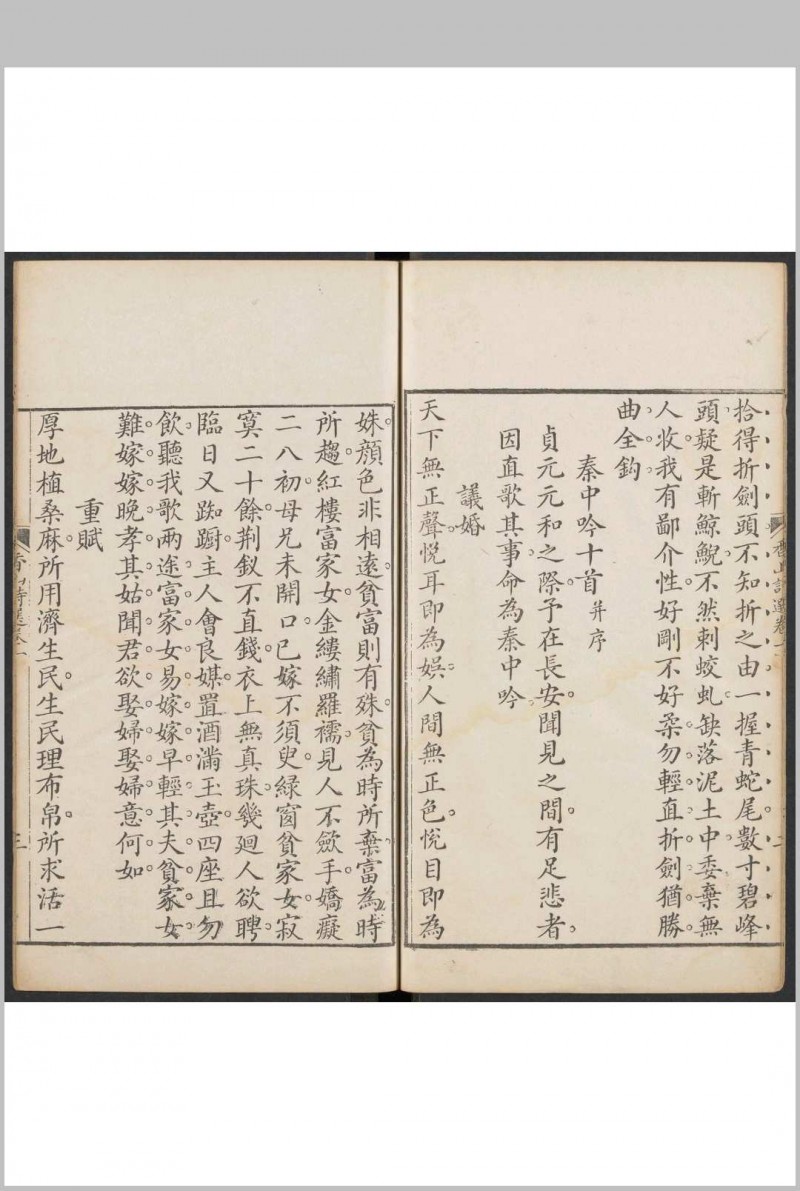 拾得折劍頭不知折之由一握青蛇尾數寸碧峰
頭疑是斬鯨鯢不然刺蛟虬缺落泥土中委棄無
人收我有鄙介性好剛不好柔勿輕直折劍猶勝
曲全鈎
秦中吟十首并序
貞元元和之際予在長安聞見之間有足悲者
因直歌其事命為秦中吟
議婚
天下無正聲悅耳即為娛人間無正色悅目即為
姝顏色非相遠貧富則有殊貧為時所棄富為時
所趨紅樓富家女金縷繡羅襦見人不斂手嬌癡
二八初母兄未開口已嫁不須臾綠窗貧家女寂
寞二十餘荆釵不直錢衣上無真珠幾廻人欲聘
臨日又踟躕主人會良媒置酒滿玉壺四座且勿
飲聽我歌兩途富家女易嫁嫁早輕其夫貧家女
難嫁嫁晚孝其姑聞君欲娶婦娶婦意何如
重賦
厚地植桑麻所用濟生民生民理布帛所求活一